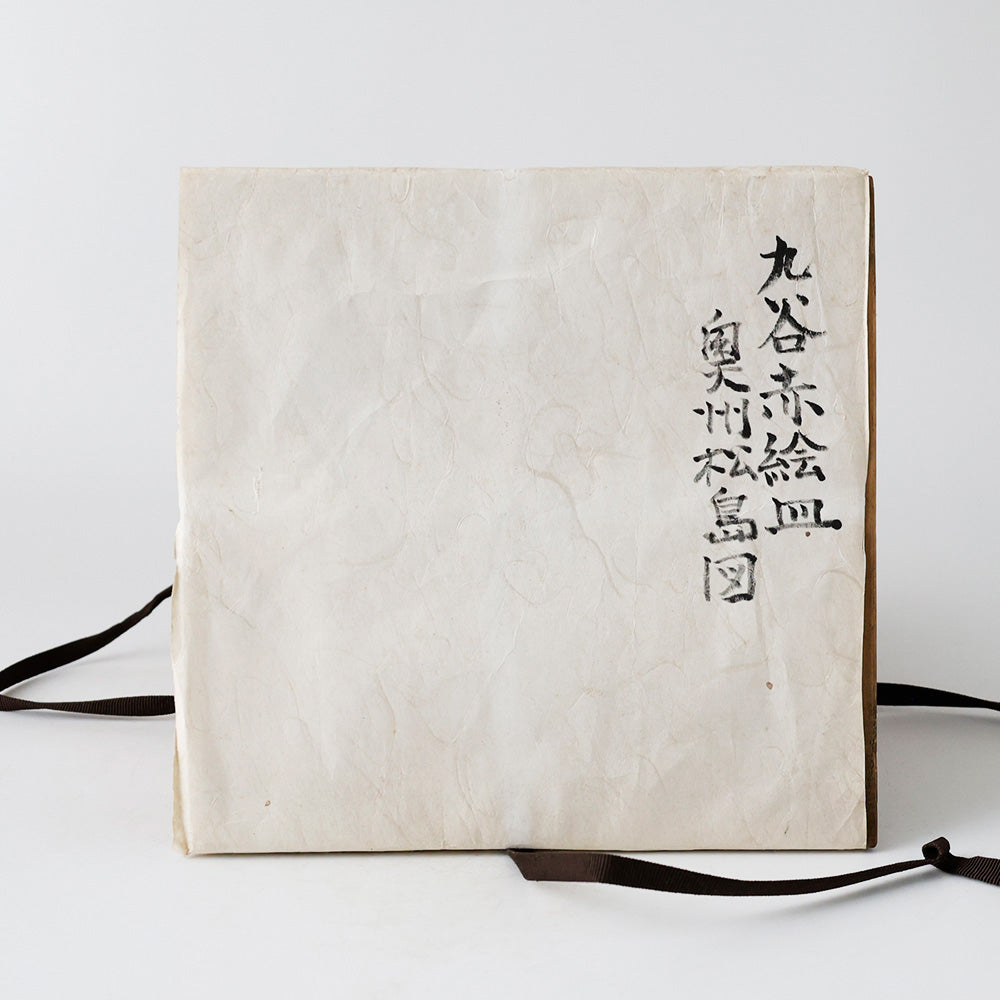 九谷赤絵皿
奥州松島図